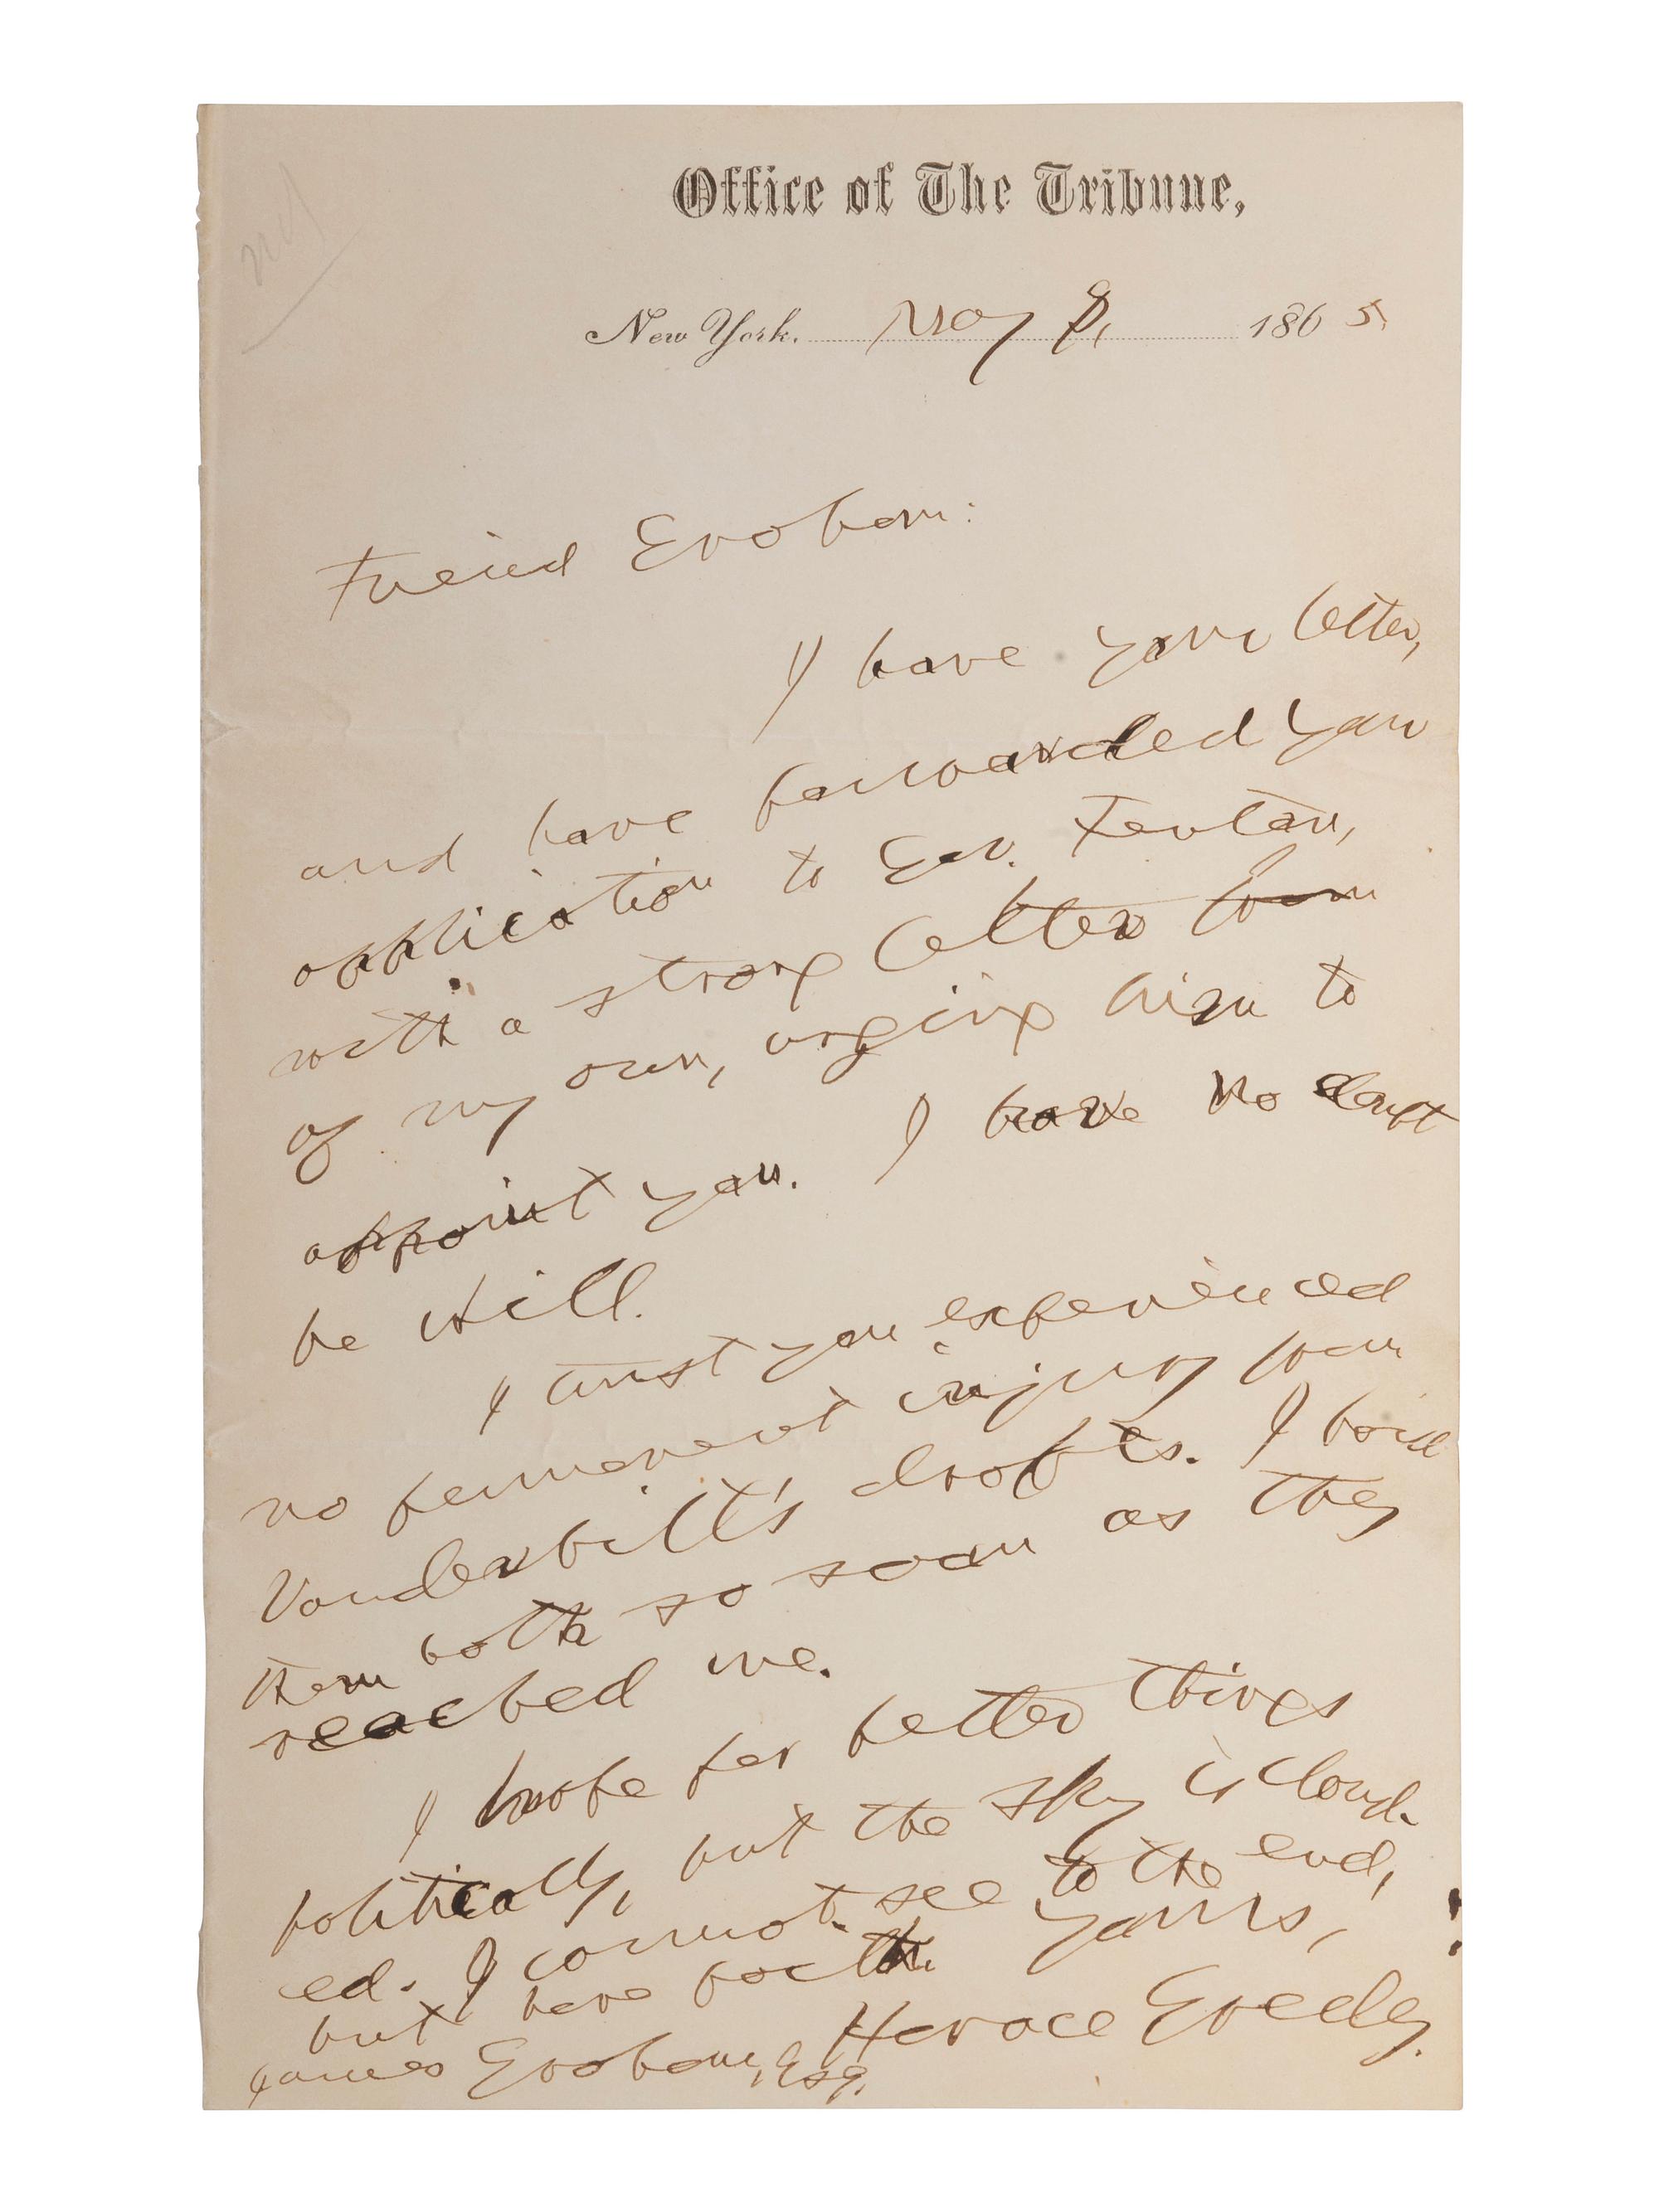 Office of The Tribune,
New York. May 8, 1865.
Friend Graham:
I have your letter,
and have forwarded your
application to Gov. Fenton,
with a strong letter from
of my own, urging him to
appoint you. I have no doubt
he will.
I trust you experienced
no permanent injury from
Vanderbilt's drafts. I paid
them both so soon as they
reached me.
I hope for better things
politically, but the sky is cloud-
ed. I cannot see to the end,
but have faith. Yours,
Horace Greeley.
James Graham, Esq.